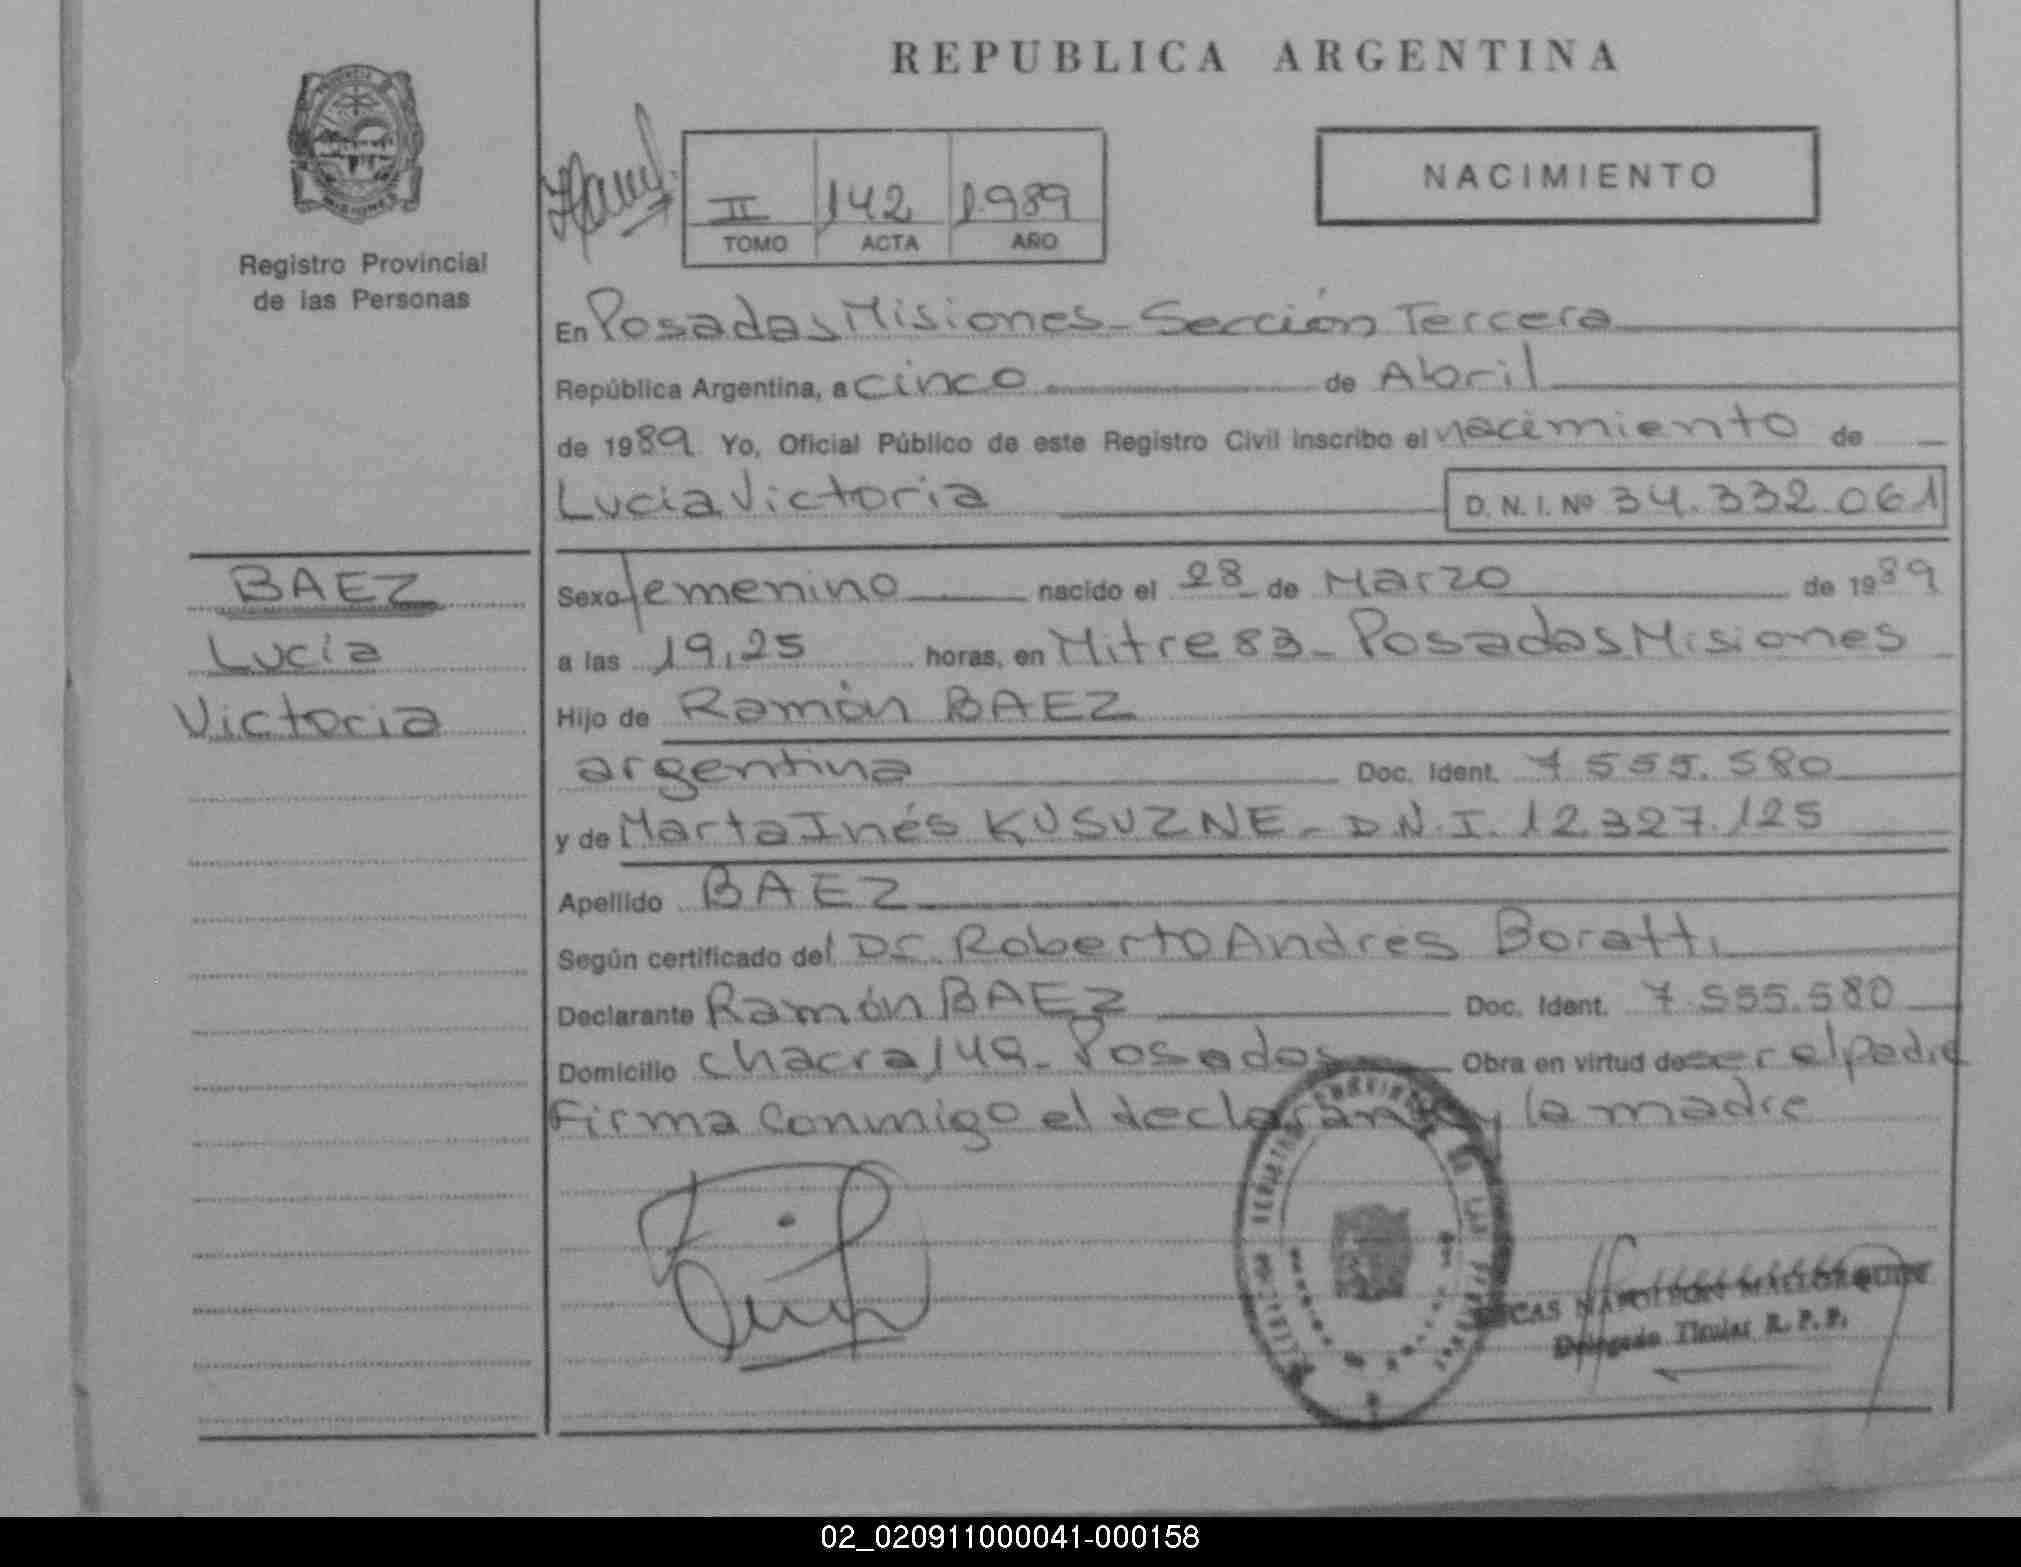 REPUBLICA ARGENTINA
NACIMIENTO
II 142 1989
TOMO ACTA AÑO
Registro Provincial
de las Personas
En Posadas Misiones - Sección Tercera
República Argentina, a cinco de Abril
de 1989 Yo, Oficial Público de este Registro Civil inscribo el nacimiento de
Lucía Victoria D. N. I. Nº 34.332.061
BAEZ
Lucía
Victoria
Sexo femenino nacido el 28 de Marzo de 1989
a las 19,25 horas, en Mitre 83 - Posadas Misiones
Hijo de Ramón BAEZ
argentina Doc. Ident. 7.555.580
y de Marta Inés KUSUZNE - D.N.I. 12.327.125
Apellido BAEZ
Según certificado del Dr. Roberto Andrés Boratti
Declarante Ramón BAEZ Doc. Ident. 7.555.580
Domicilio chacra 149 - Posadas Obra en virtud de ser el padre
Firma conmigo el declarante y la madre
NAPOLEON MALLORQUIN
Delegado Titular R. P. P.
02_020911000041-000158